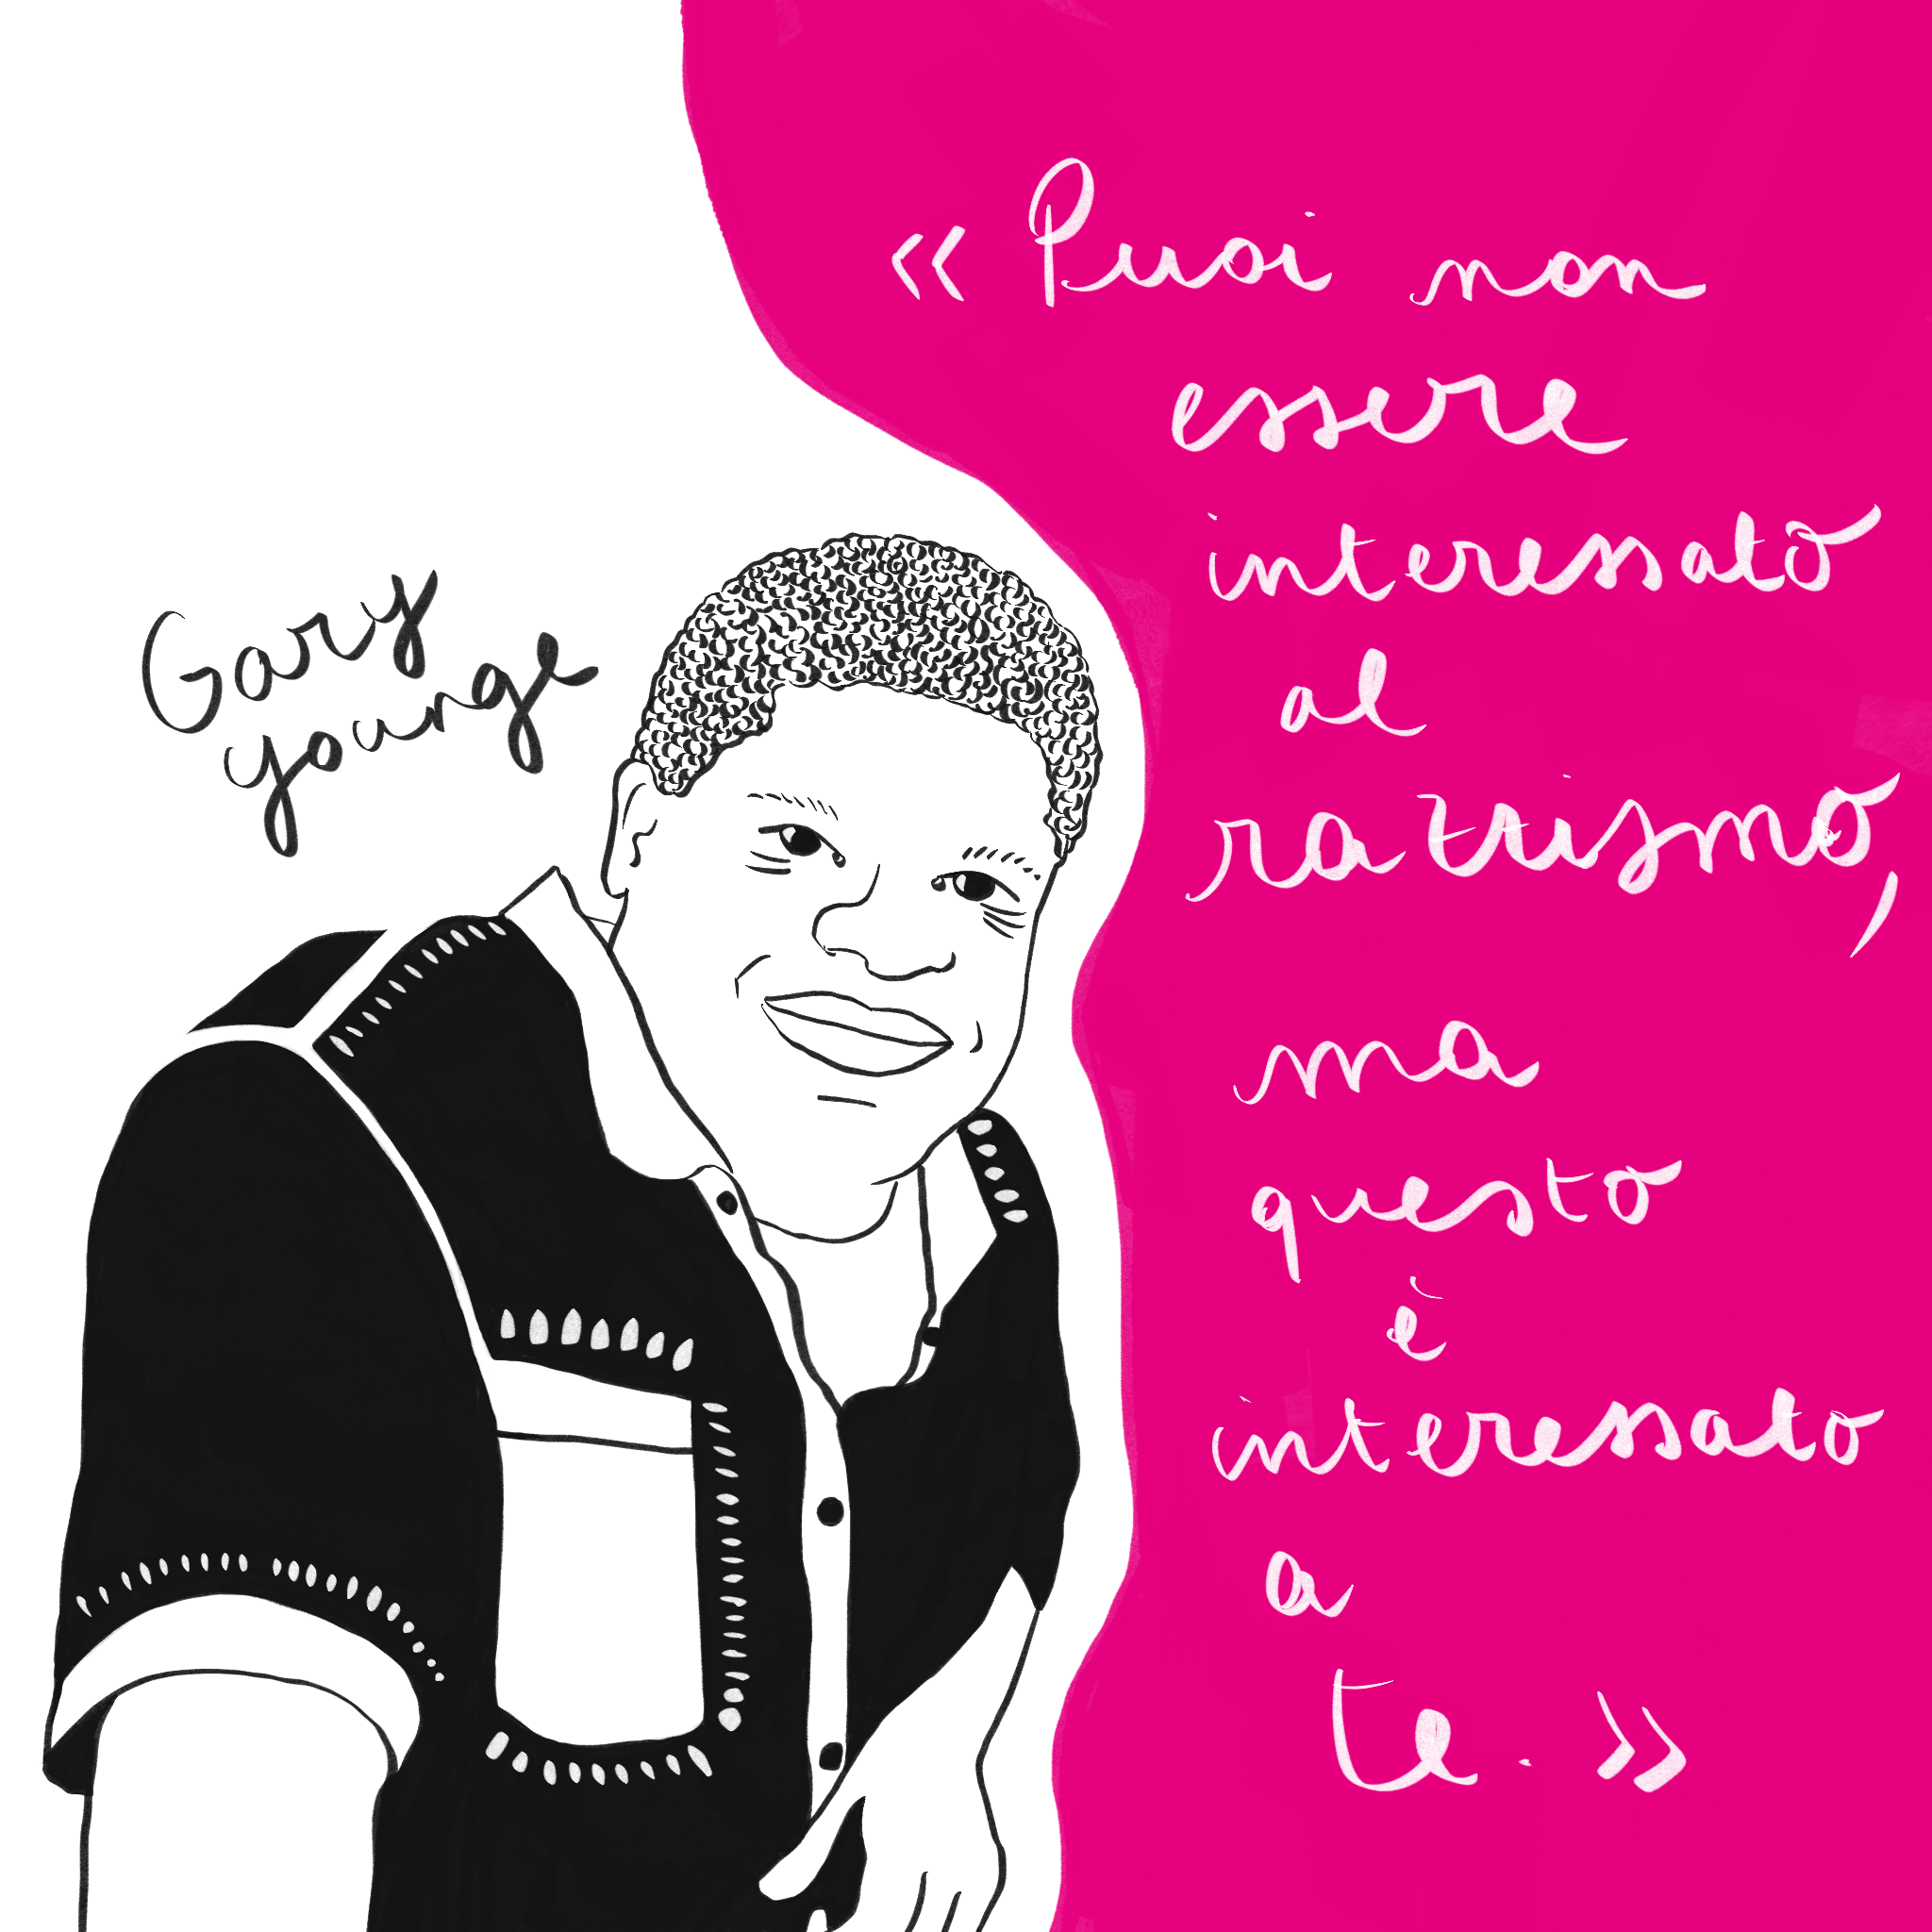 Gary
younge
« Puoi non
essere
interessato
al
razzismo,
ma
questo
è
interessato
a
te. »